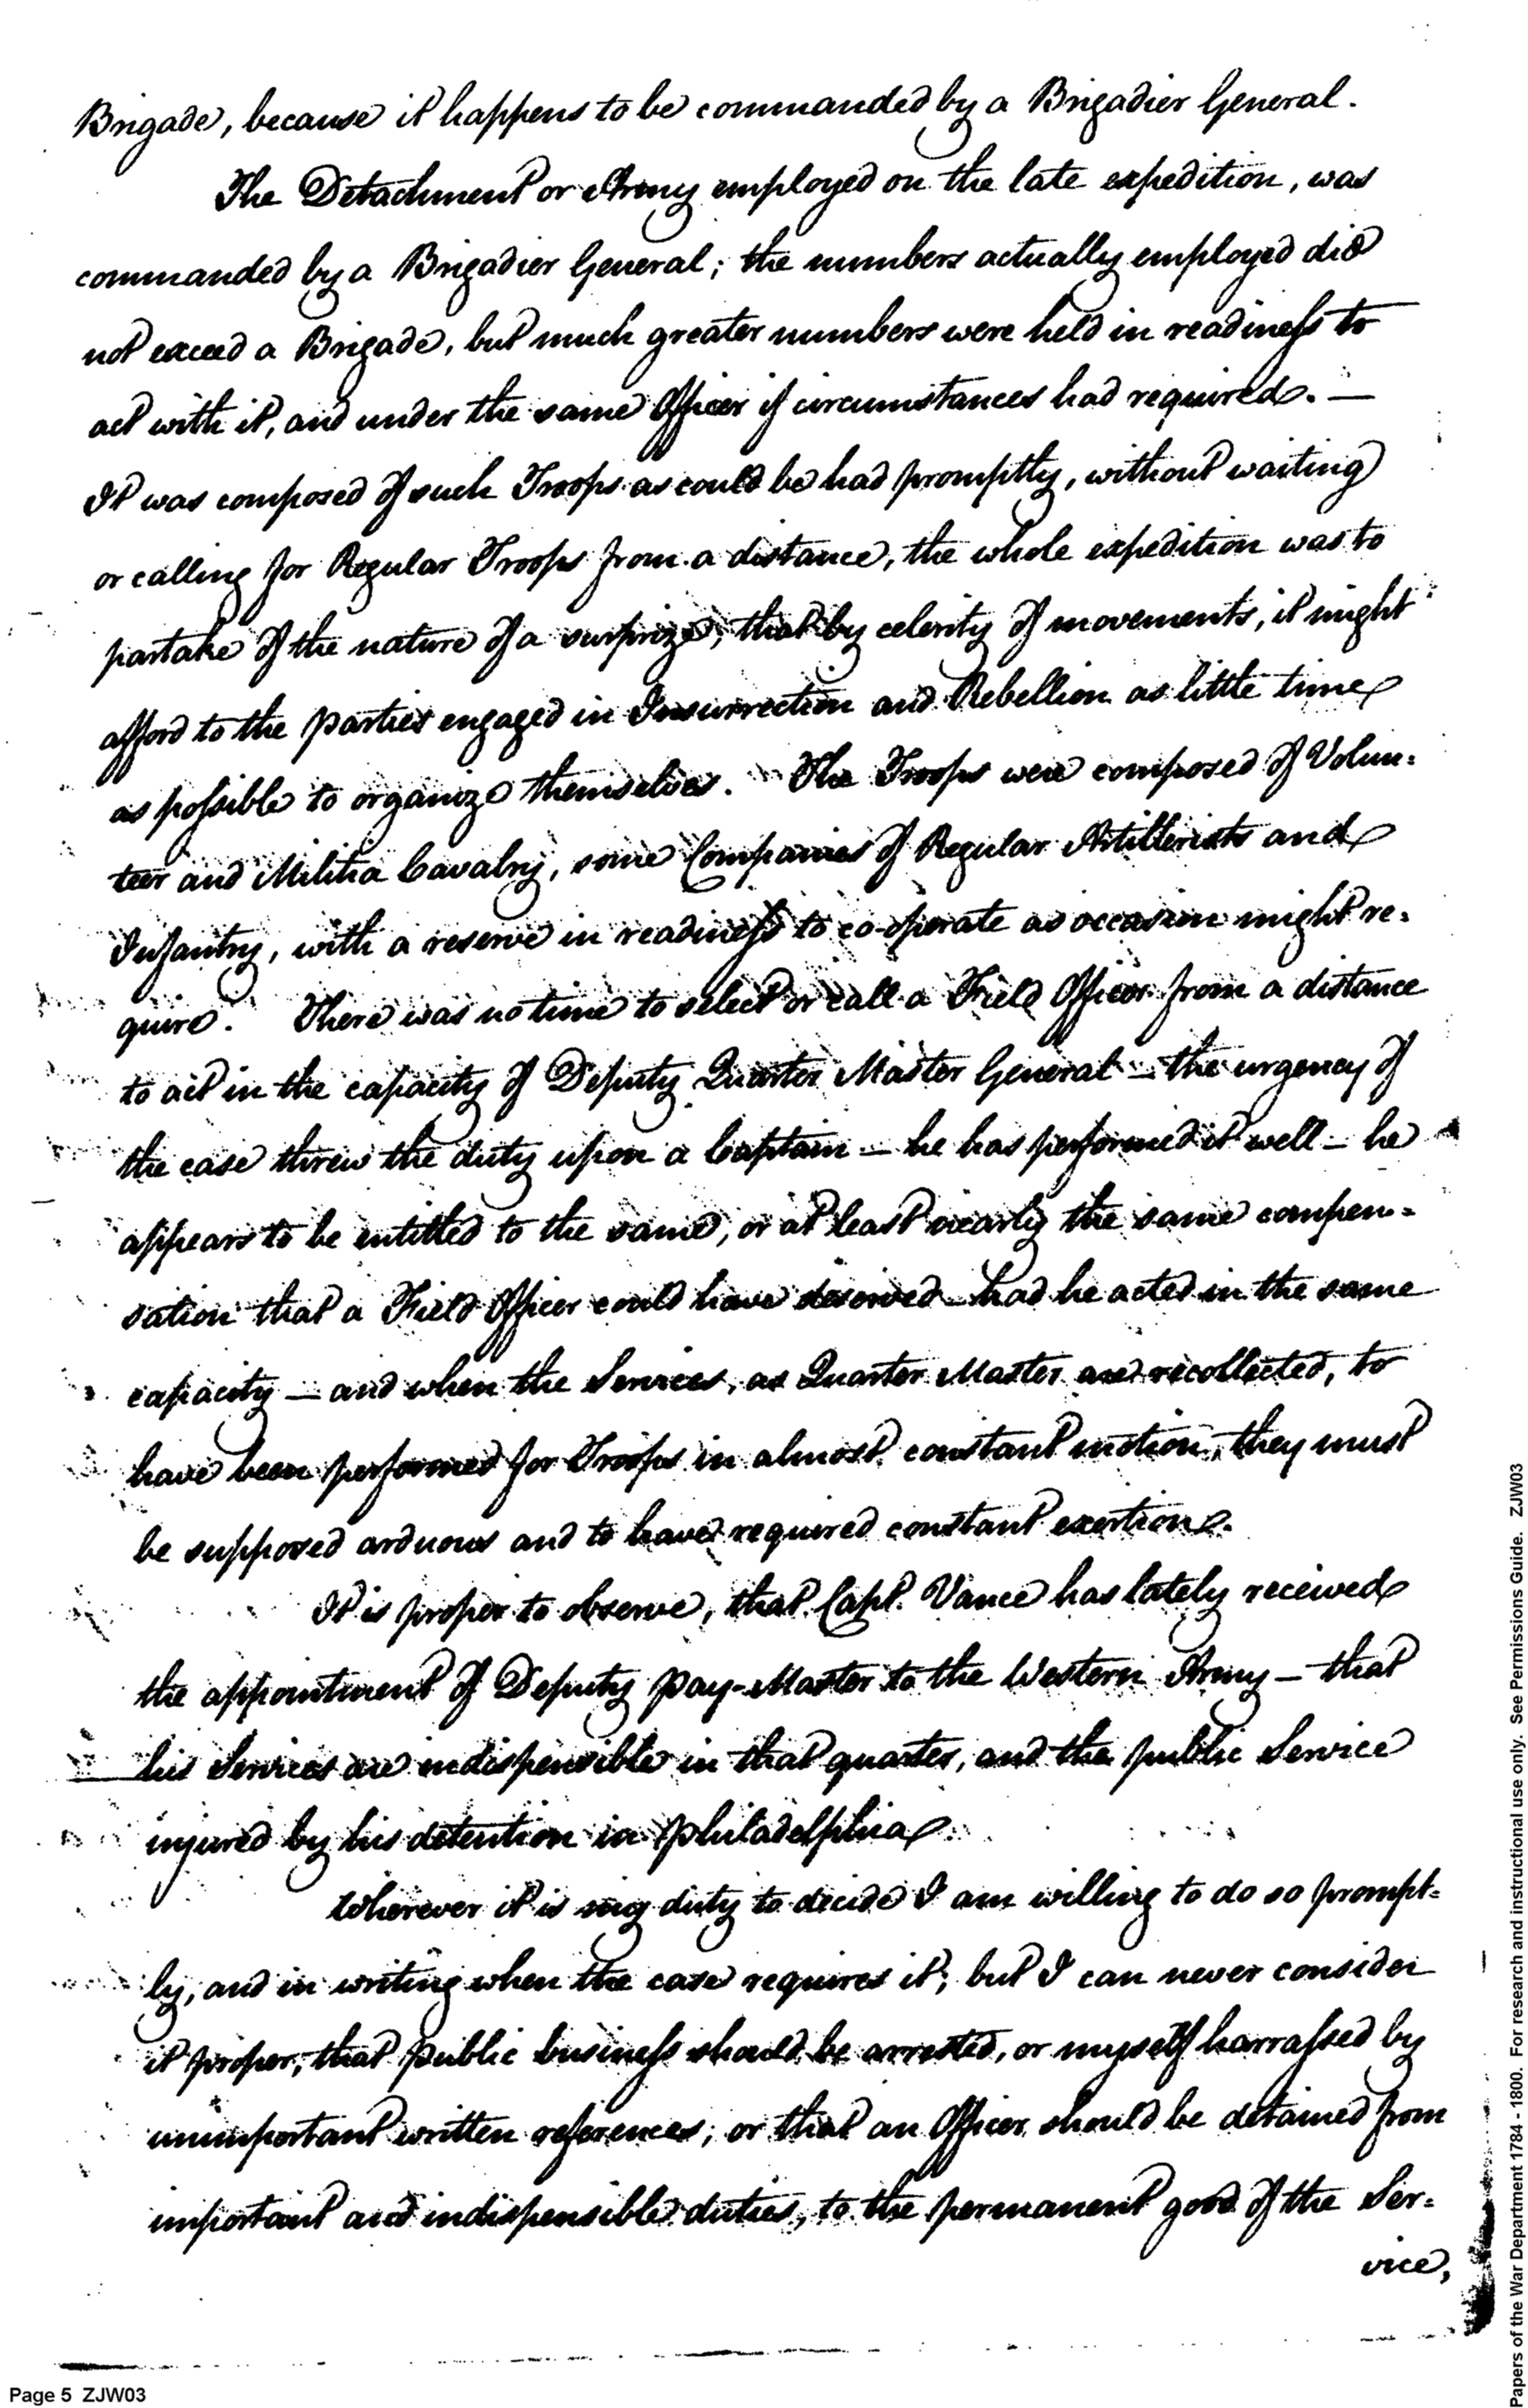 Brigade, because it happens to be commanded by a Brigadier General.
The Detachment or Army employed on the late expedition, was
commanded by a Brigadier General; the numbers actually employed did
not exceed a Brigade, but much greater numbers were held in readiness to
act with it, and under the same Officer if circumstances had required. —
It was composed of such Troops as could be had promptly, without waiting
or calling for Regular Troops from a distance, the whole expedition was to
partake of the nature of a surprize, that by celerity of movements, it might
afford to the parties engaged in Insurrection and Rebellion as little time
as possible to organize themselves. The Troops were composed of Volun=
teer and Militia Cavalry, some Companies of Regular Artillerists and
Infantry, with a reserve in readiness to co-operate as occasion might re=
quire. There was no time to select or call a Field Officer from a distance
to act in the capacity of Deputy Quarter Master General – the urgency of
the case threw the duty upon a Captain – he has performed it well – he
appears to be entitled to the same, or at least nearly the same compen=
sation that a Field Officer could have deserved – had he acted in the same
capacity – and when the Services, as Quarter Master are recollected, to
have been performed for Troops in almost constant motion, they must
be supposed arduous and to have required constant exertion.
It is proper to observe, that Capt. Vance has lately received
the appointment of Deputy Pay-Master to the Western Army – that
his Services are indispensible in that quarter, and the public Service
injured by his detention in Philadelphia.
Wherever it is my duty to decide I am willing to do so prompt=
ly, and in writing when the case requires it; but I can never consider
it proper, that public business should be arrested, or myself harrassed by
unimportant written references; or that an Officer should be detained from
important and indispensible duties, to the permanent good of the Ser=
vice,
Page 5 ZJW03
Papers of the War Department 1784 - 1800. For research and instructional use only. See Permissions Guide. ZJW03